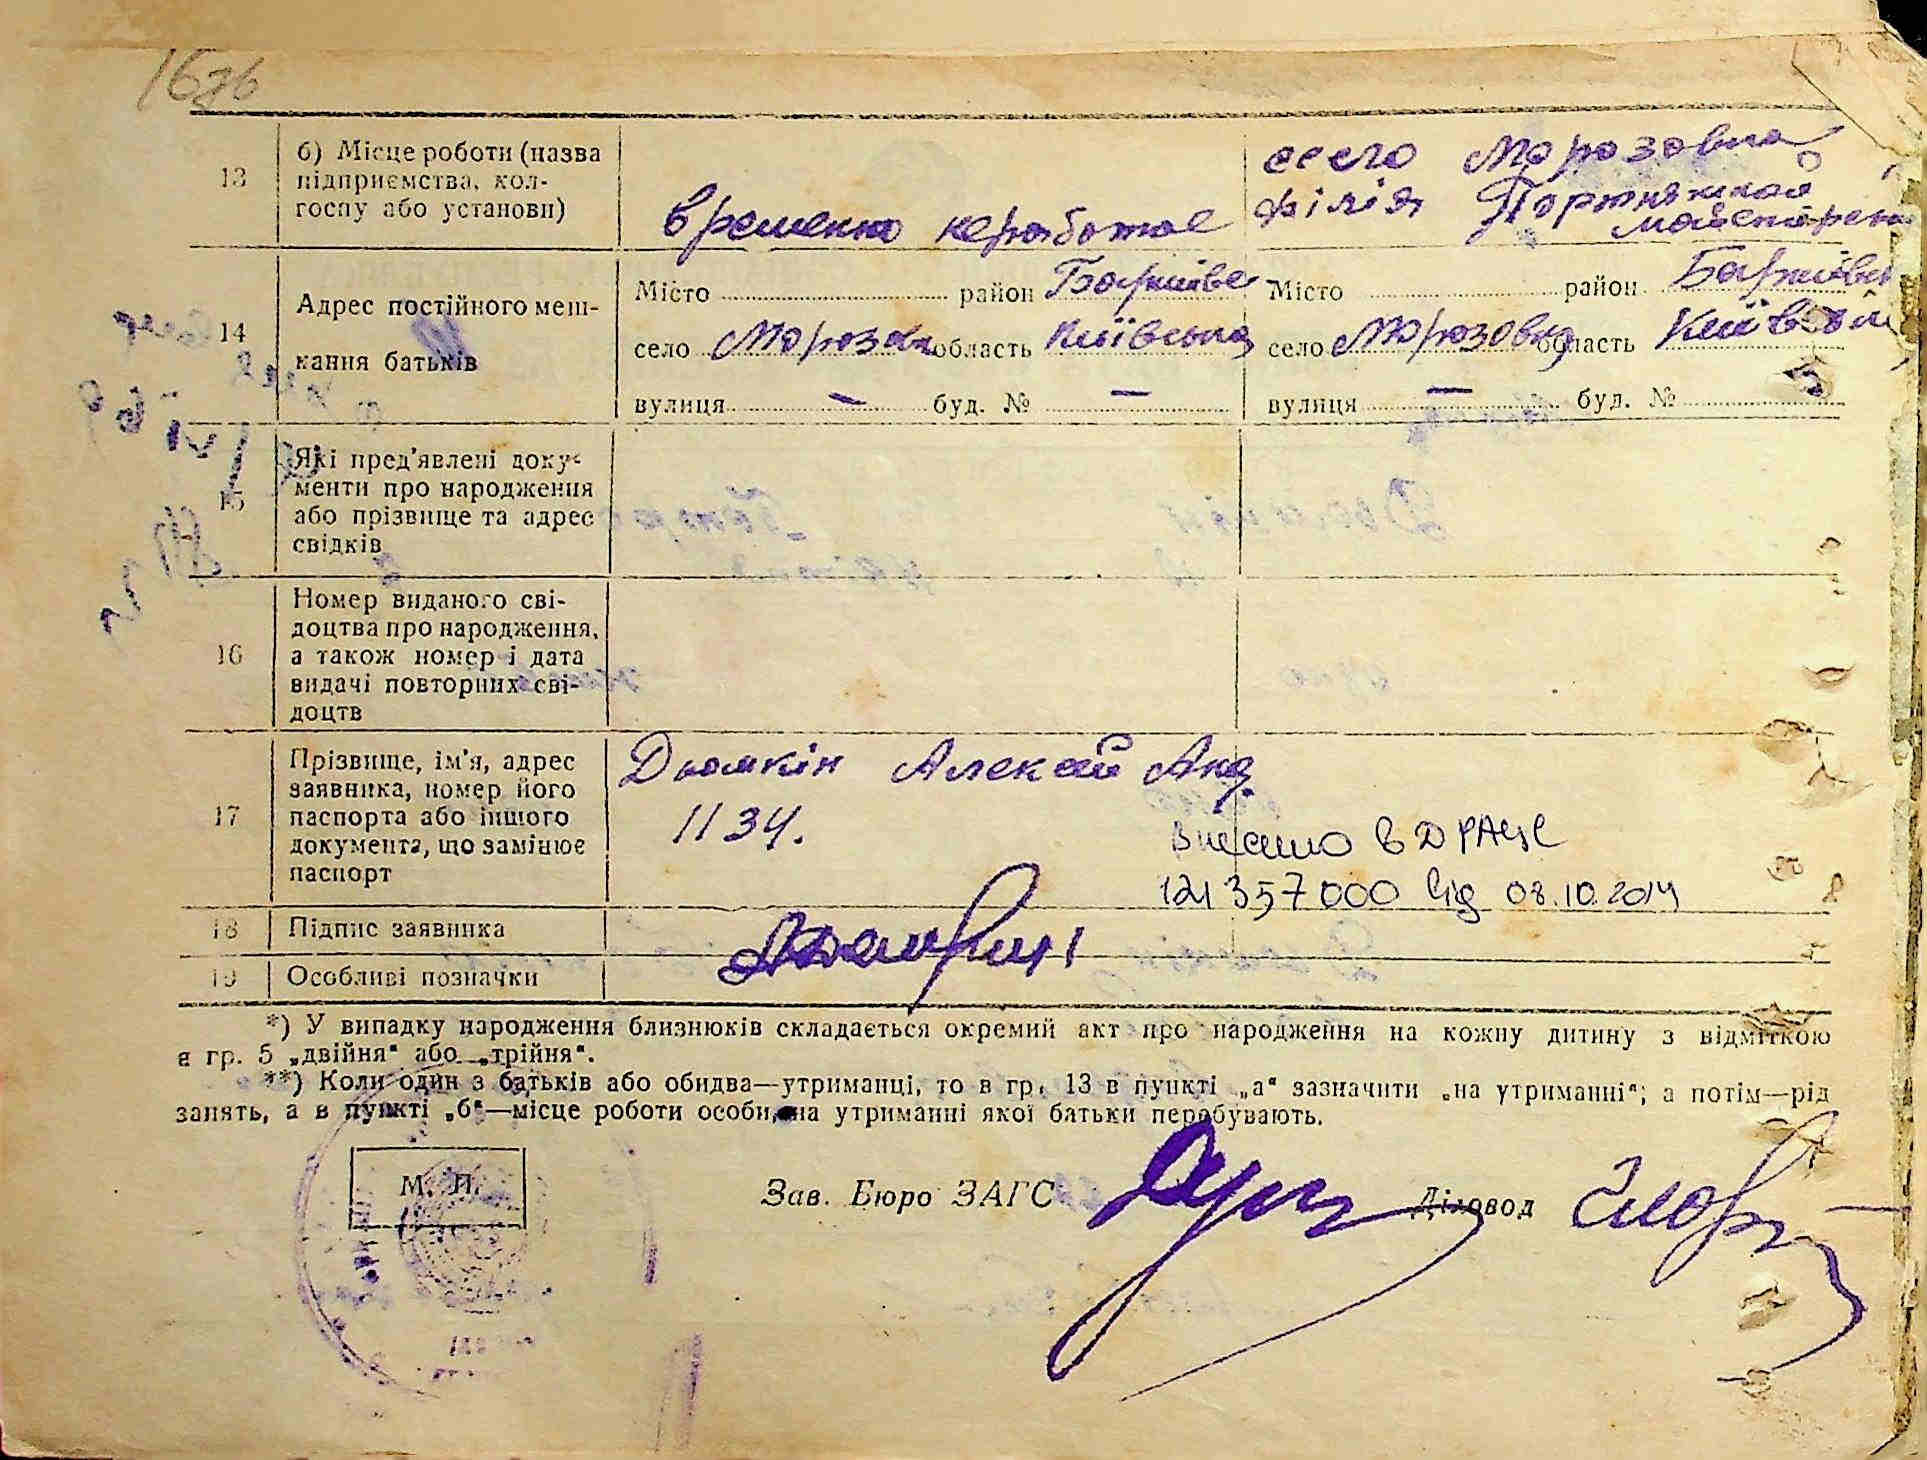 13
б) Місце роботи (назва
підприємства, кол-
госпу або установи)
временно неработае
село Морозовка
філія Портняжной
майстерень
14
Адрес постійного меш-
кання батьків
Місто район Баришівс
село Морозовка область Київська
вулиця — буд. № —
Місто район Баришівск
село Морозовка область Київськ
вулиця — буд. №
15
Які пред'явлені доку-
менти про народження
або прізвище та адрес
свідків
16
Номер виданого сві-
доцтва про народження,
а також номер і дата
видачі повторних сві-
доцтв
17
Прізвище, ім'я, адрес
заявника, номер його
паспорта або іншого
документа, що замінює
паспорт
Дьомкін Алексей Анд
1134.
Внесено в ДРАЦС
121357000 від 08.10.2014
18
Підпис заявника
19
Особливі позначки
*) У випадку народження близнюків складається окремий акт про народження на кожну дитину з відміткою
в гр. 5 „двійня“ або „трійня“.
**) Коли один з батьків або обидва—утриманці, то в гр. 13 в пункті „а“ зазначити „на утриманні“; а потім—рід
занять, а в пункті „б“—місце роботи особи, на утриманні якої батьки перебувають.
М. П.
Зав. Бюро ЗАГС
Діловод